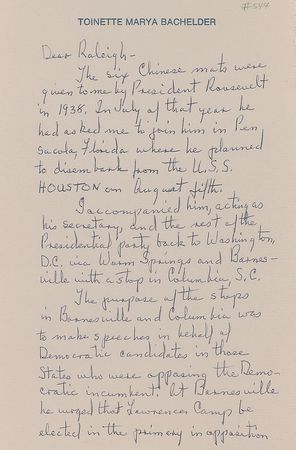 #544
TOINETTE MARYA BACHELDER
Dear Raleigh-
The six Chinese mats were
given to me by President Roosevelt
in 1938. In July of that year he
had asked me to join him in Pen,
sacola, Florida where he planned
to disembark from the U.S.S.
HOUSTON on August fifth.
I accompanied him, acting as
his secretary, and the rest of the
Presidential party back to Washington,
D.C. via Warm Springs and Barnes-
ville with a stop in Columbia, S.C.
The purpose of the stops
in Barnesville and Columbia was
to make speeches in behalf of
Democratic candidates in those
States who were opposing the Demo-
cratic incumbent. At Barnesville
he urged that Lawrence Camp be
elected in the primary in opposition